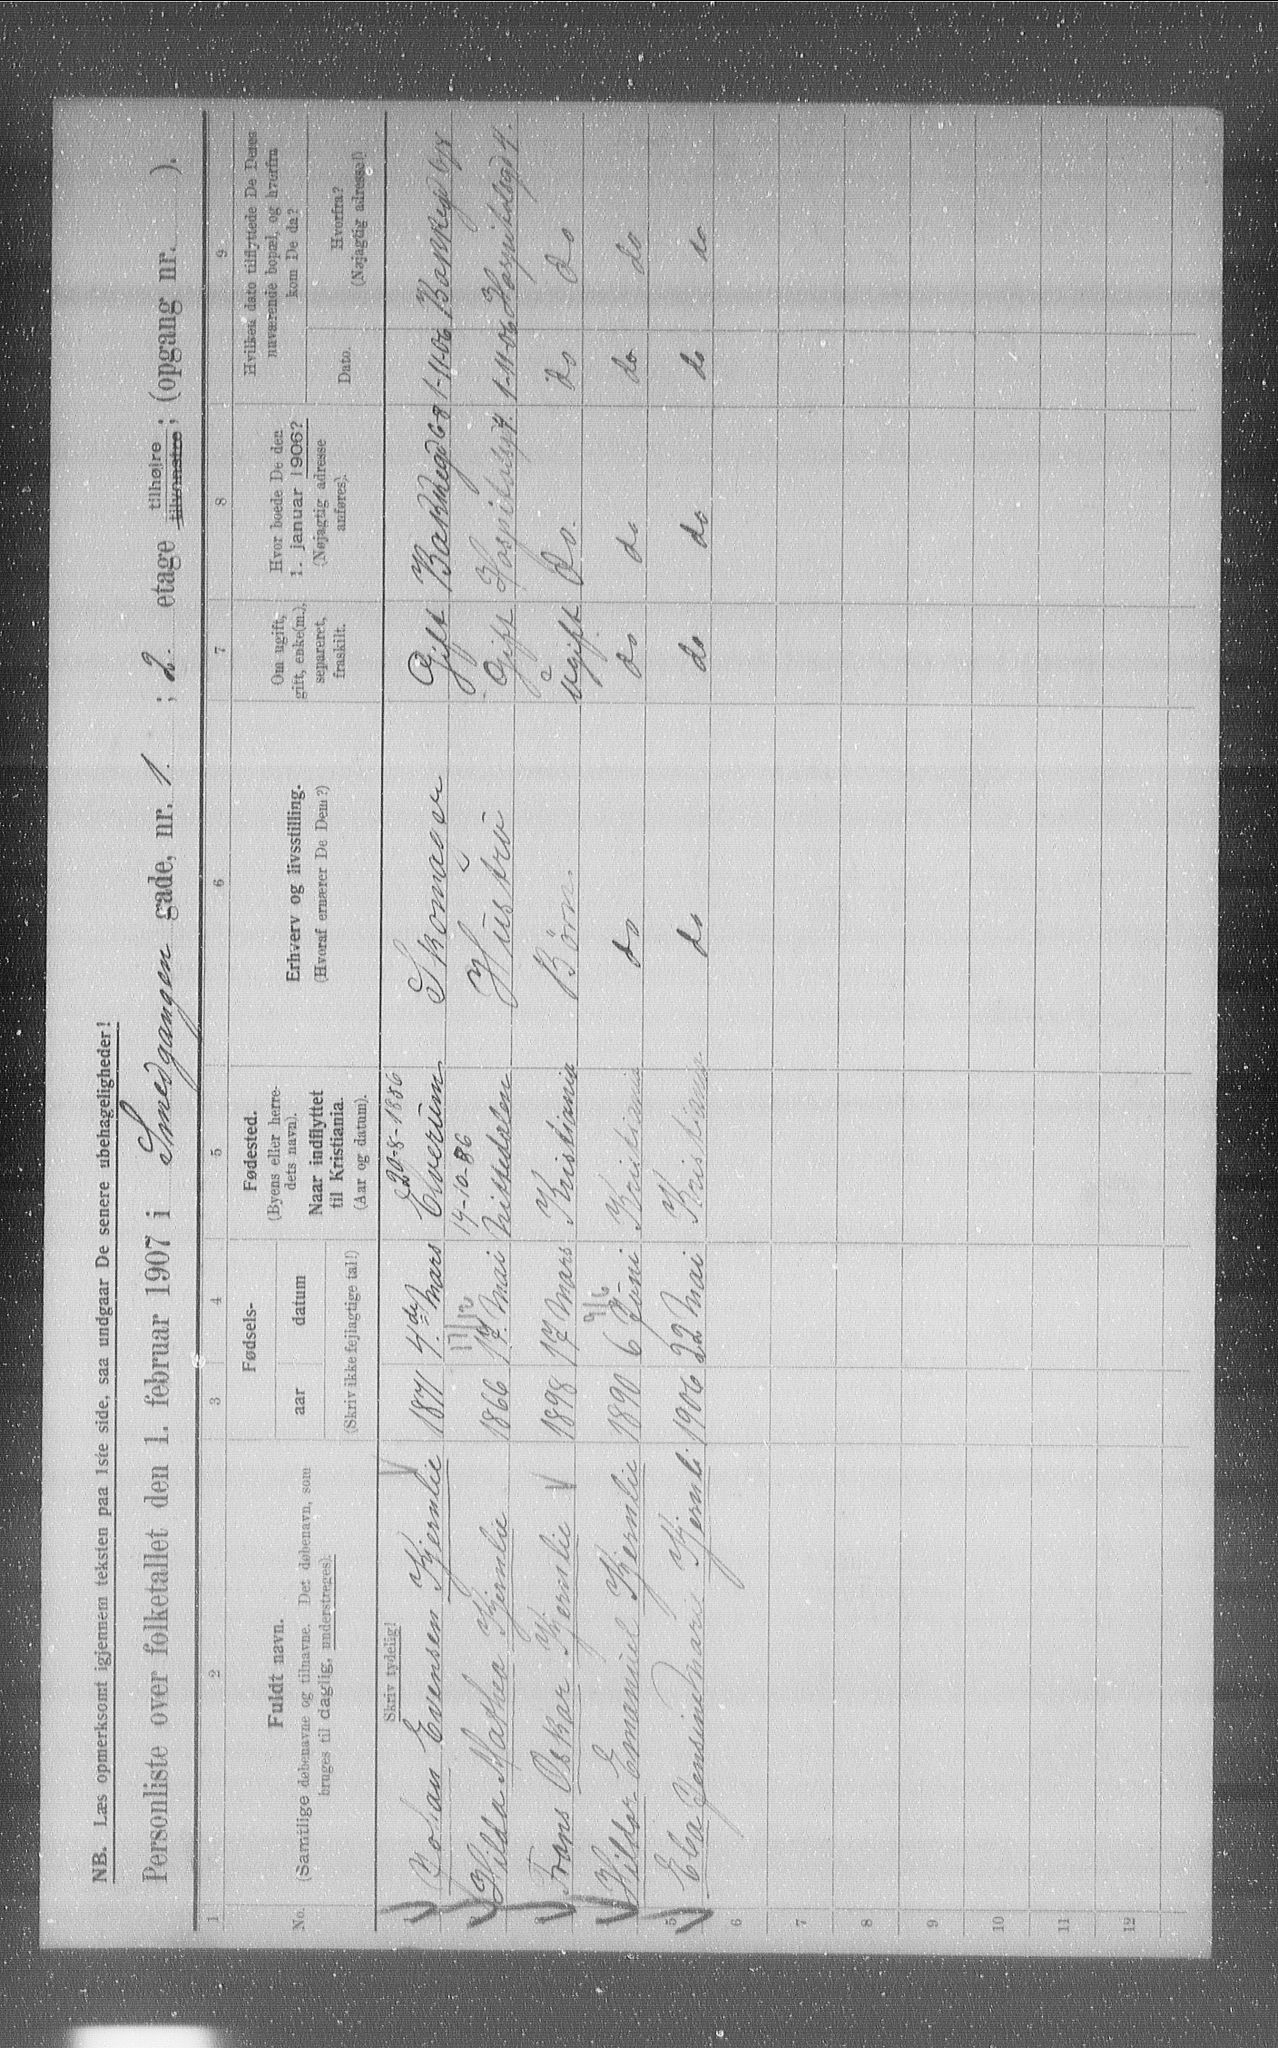 NB. Læs opmerksomt igjennem teksten paa 1ste side, saa undgaar De senere ubehageligheder!
Personliste over folketallet den 1. februar 1907 i Smedgangen gade, nr. 1 ; 2 etage tilhøire tilvenstre; (opgang nr. ).
1 2 3 4 5 6 7 8 9
No. Fuldt navn. (Samtlige døbenavne og tilnavne. Det døbenavn, som bruges til daglig, understreges).
Fødsels- aar datum (Skriv ikke feilagtige tal!)
Fødested. (Byens eller herredets navn). Naar indflyttet til Kristiania. (Aar og datum).
Erhverv og livsstilling. (Hvoraf ernærer De Dem?)
Om ugift, gift, enke(m.), separeret, fraskilt.
Hvor boede De den 1. januar 1906? (Nøjagtig adresse anføres).
Hvilken dato tilflyttede De Deres nuværende bopæl, og hvorfra kom De da? Dato. Hvorfra? (Nøjagtig adresse!)
Skriv tydelig!
20-8-1886
1 Johan Evensen Kjernlie 1871 4de Mars Elverum Skomager Gift Bakkegd 1-11-06 Bakkegd
11/12 14-10-86
2 Hilda Mathea Kjernlie 1866 17. Mai Nittedalen Hustru Gift Hospitalsg 4. 1-11-06 Hospitalsgd 4.
3 Frans Oskar Kjernlie 1898 17 Mars Kristiania Börn. Ugift Do. do do
9/6
4 Hildor Emanuel Kjernlie 1890 6 Juni Kristiania do do do do do
5 Elva Jensine Marie Kjernli 1906 22 Mai Kristiania do do do do do
6
7
8
9
10
11
12